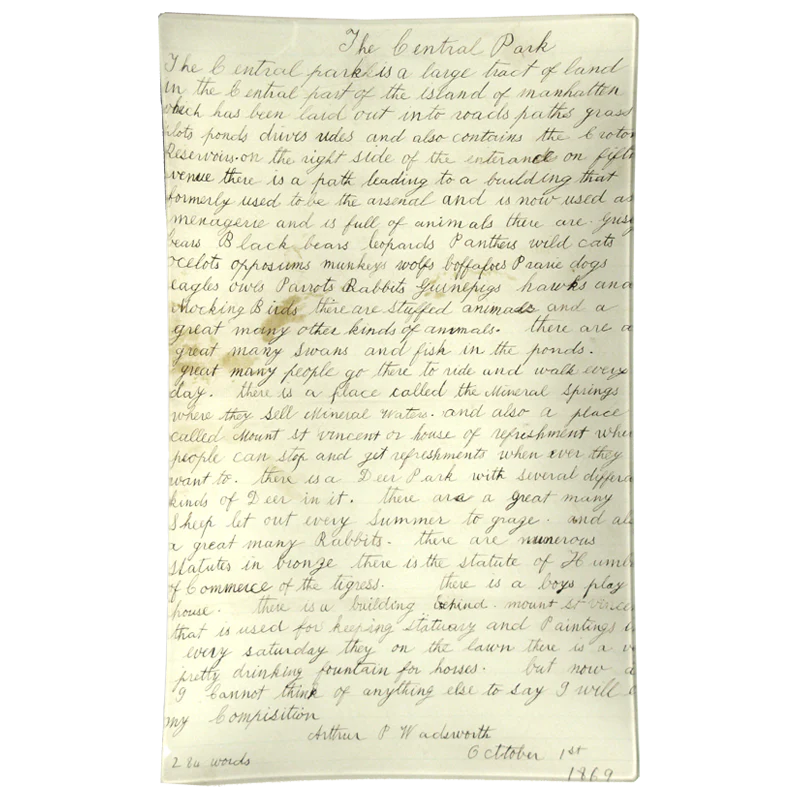 The Central Park
The Central park is a large tract of land
in the Central part of the island of manhatten
which has been laid out into roads paths grass
plots ponds drives rides and also contains the Croton
Reservoirs. on the right side of the enterance on fifth
avenue there is a path leading to a building that
formerly used to be the arsenal and is now used as
menagerie and is full of animals there are
bears Black bears leopards Panthers wild cats
ocelots opposums munkeys wolfs boffafoes Prarie dogs
eagles owls Parrots Rabbits Guinepigs hawks and
Mocking Birds there are stuffed animals and a
great many other kinds of animals. there are a
great many swans and fish in the ponds.
great many people go there to ride and walk every
day. there is a place called the Mineral Springs
where they sell Mineral Waters. and also a place
called Mount St Vincent or house of refreshment wher
people can stop and get refreshments when ever they
want to. there is a Deer Park with several differa
kinds of Deer in it. there are a great many
Sheep let out every Summer to graze. and als
a great many Rabbits. there are numerous
statutes in bronze there is the statute of Humb
of Commerce of the tigress. there is a boys play
house. there is a building behind. mount St Vincen
that is used for keeping statuary and Paintings i
every saturday they on the lawn there is a v
pretty drinking fountain for horses. but now a
I cannot think of anything else to say I will c
my Compisition
Arthur P Wadsworth
October 1st
1869
words